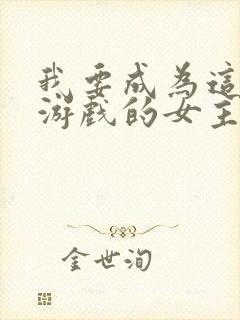 我要成為這
游戲的女主
金世洵